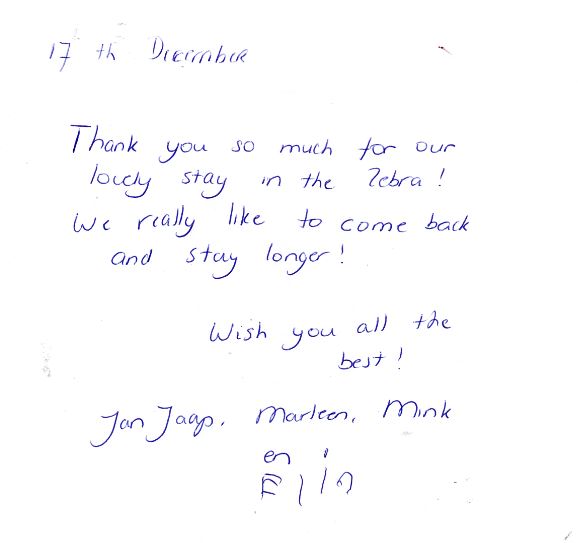 17 th December
Thank you so much for our
lovely stay in the Zebra!
We really like to come back
and stay longer!
Wish you all the
best!
Jan Jaap, Marleen, Mink
en
Elin